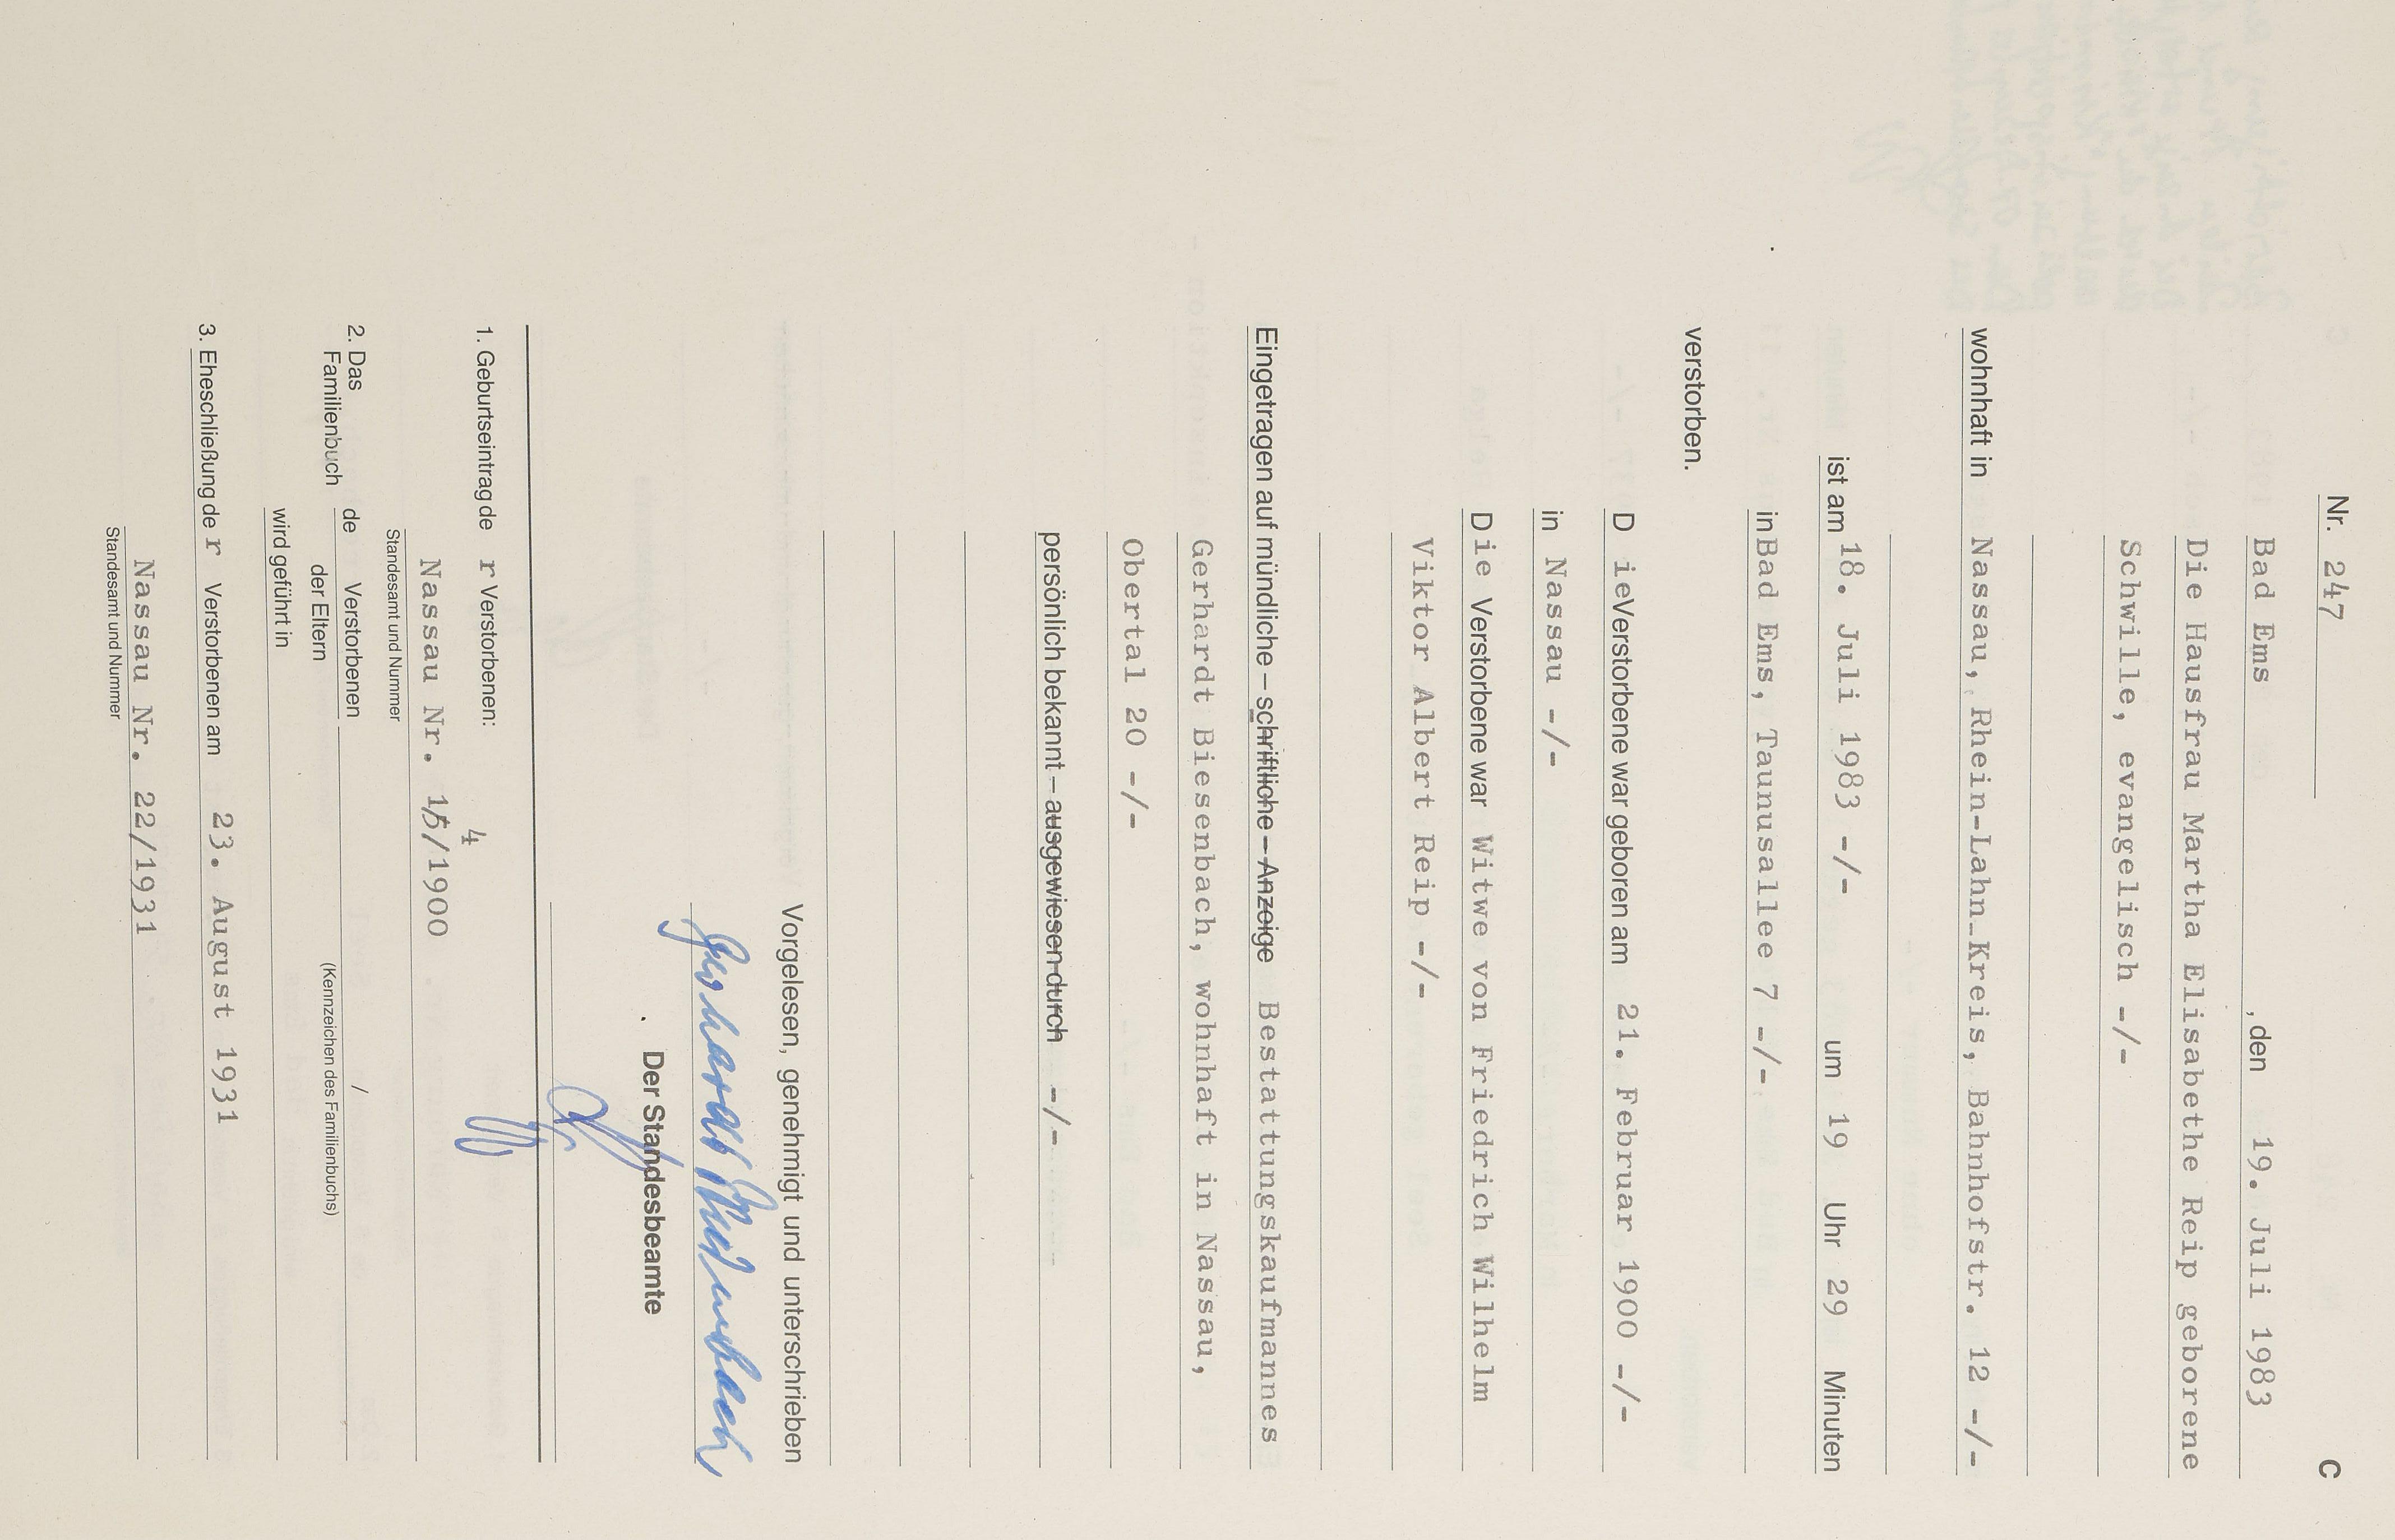 Nr. 247 C
Bad Ems, den 19. Juli 1983
Die Hausfrau Martha Elisabethe Reip geborene
Schwille, evangelisch -/-
wohnhaft in Nassau, Rhein-Lahn-Kreis, Bahnhofstr. 12 -/-
ist am 18. Juli 1983 -/- um 19 Uhr 29 Minuten
in Bad Ems, Taunusallee 7 -/-
verstorben.
Die Verstorbene war geboren am 21. Februar 1900 -/-
in Nassau -/-
Die Verstorbene war Witwe von Friedrich Wilhelm
Viktor Albert Reip -/-
Eingetragen auf mündliche – schriftliche – Anzeige Bestattungskaufmannes
Gerhardt Biesenbach, wohnhaft in Nassau,
Obertal 20 -/-
persönlich bekannt – ausgewiesen durch -/-
Vorgelesen, genehmigt und unterschrieben
Gerhardt Biesenbach
Der Standesbeamte
1. Geburtseintrag der Verstorbenen:
4
Nassau Nr. 15/1900
Standesamt und Nummer
2. Das Familienbuch de Verstorbenen /
der Eltern (Kennzeichen des Familienbuchs)
wird geführt in
3. Eheschließung der Verstorbenen am 23. August 1931
Nassau Nr. 22/1931
Standesamt und Nummer